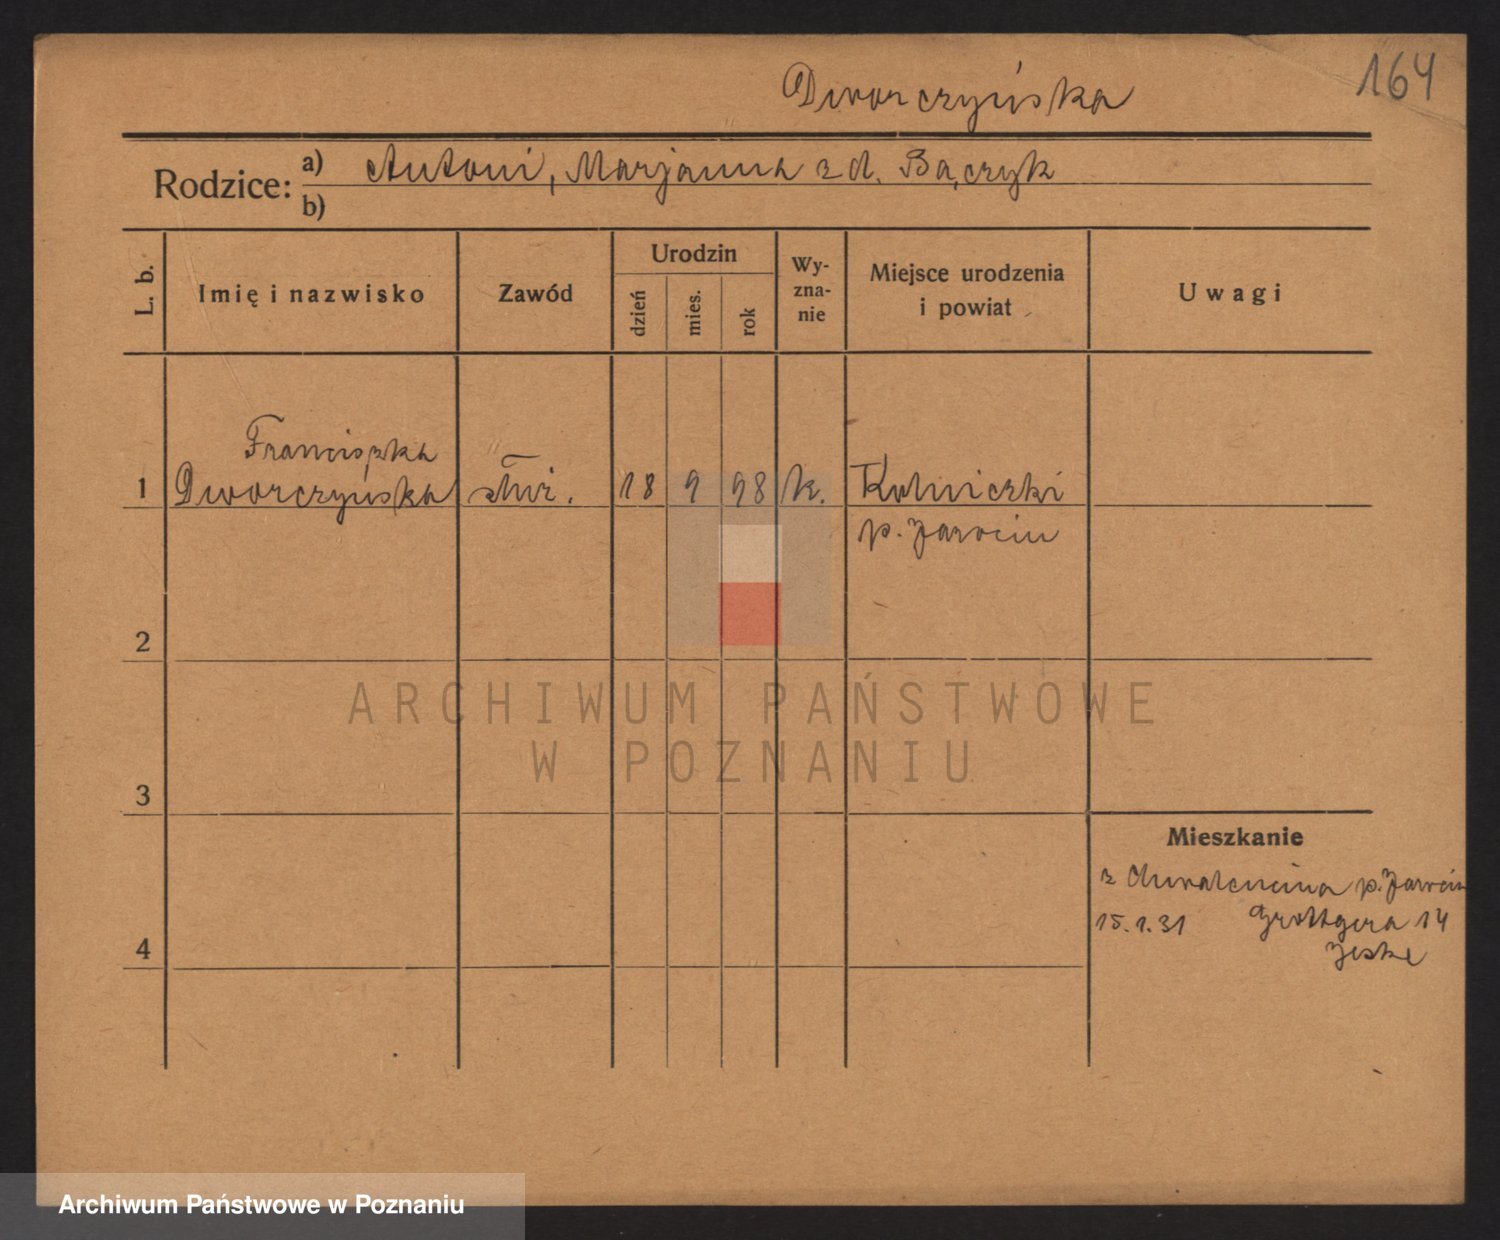 Dworczyńska
164
Rodzice: a) Antoni, Marjanna z d. Bączyk
b)
L. b.
Imię i nazwisko
Zawód
Urodzin
dzień
mies.
rok
Wy-
zna-
nie
Miejsce urodzenia
i powiat
Uwagi
Franciszka
1 Dworczyńska służ. 18 9 98 k. Kolniczki
p. Jarocin
2
3
4
Mieszkanie
z Chwalęcina p. Jarocin
15.1.31 Grottgera 14
Jeske
ARCHIWUM PAŃSTWOWE
W POZNANIU
Archiwum Państwowe w Poznaniu